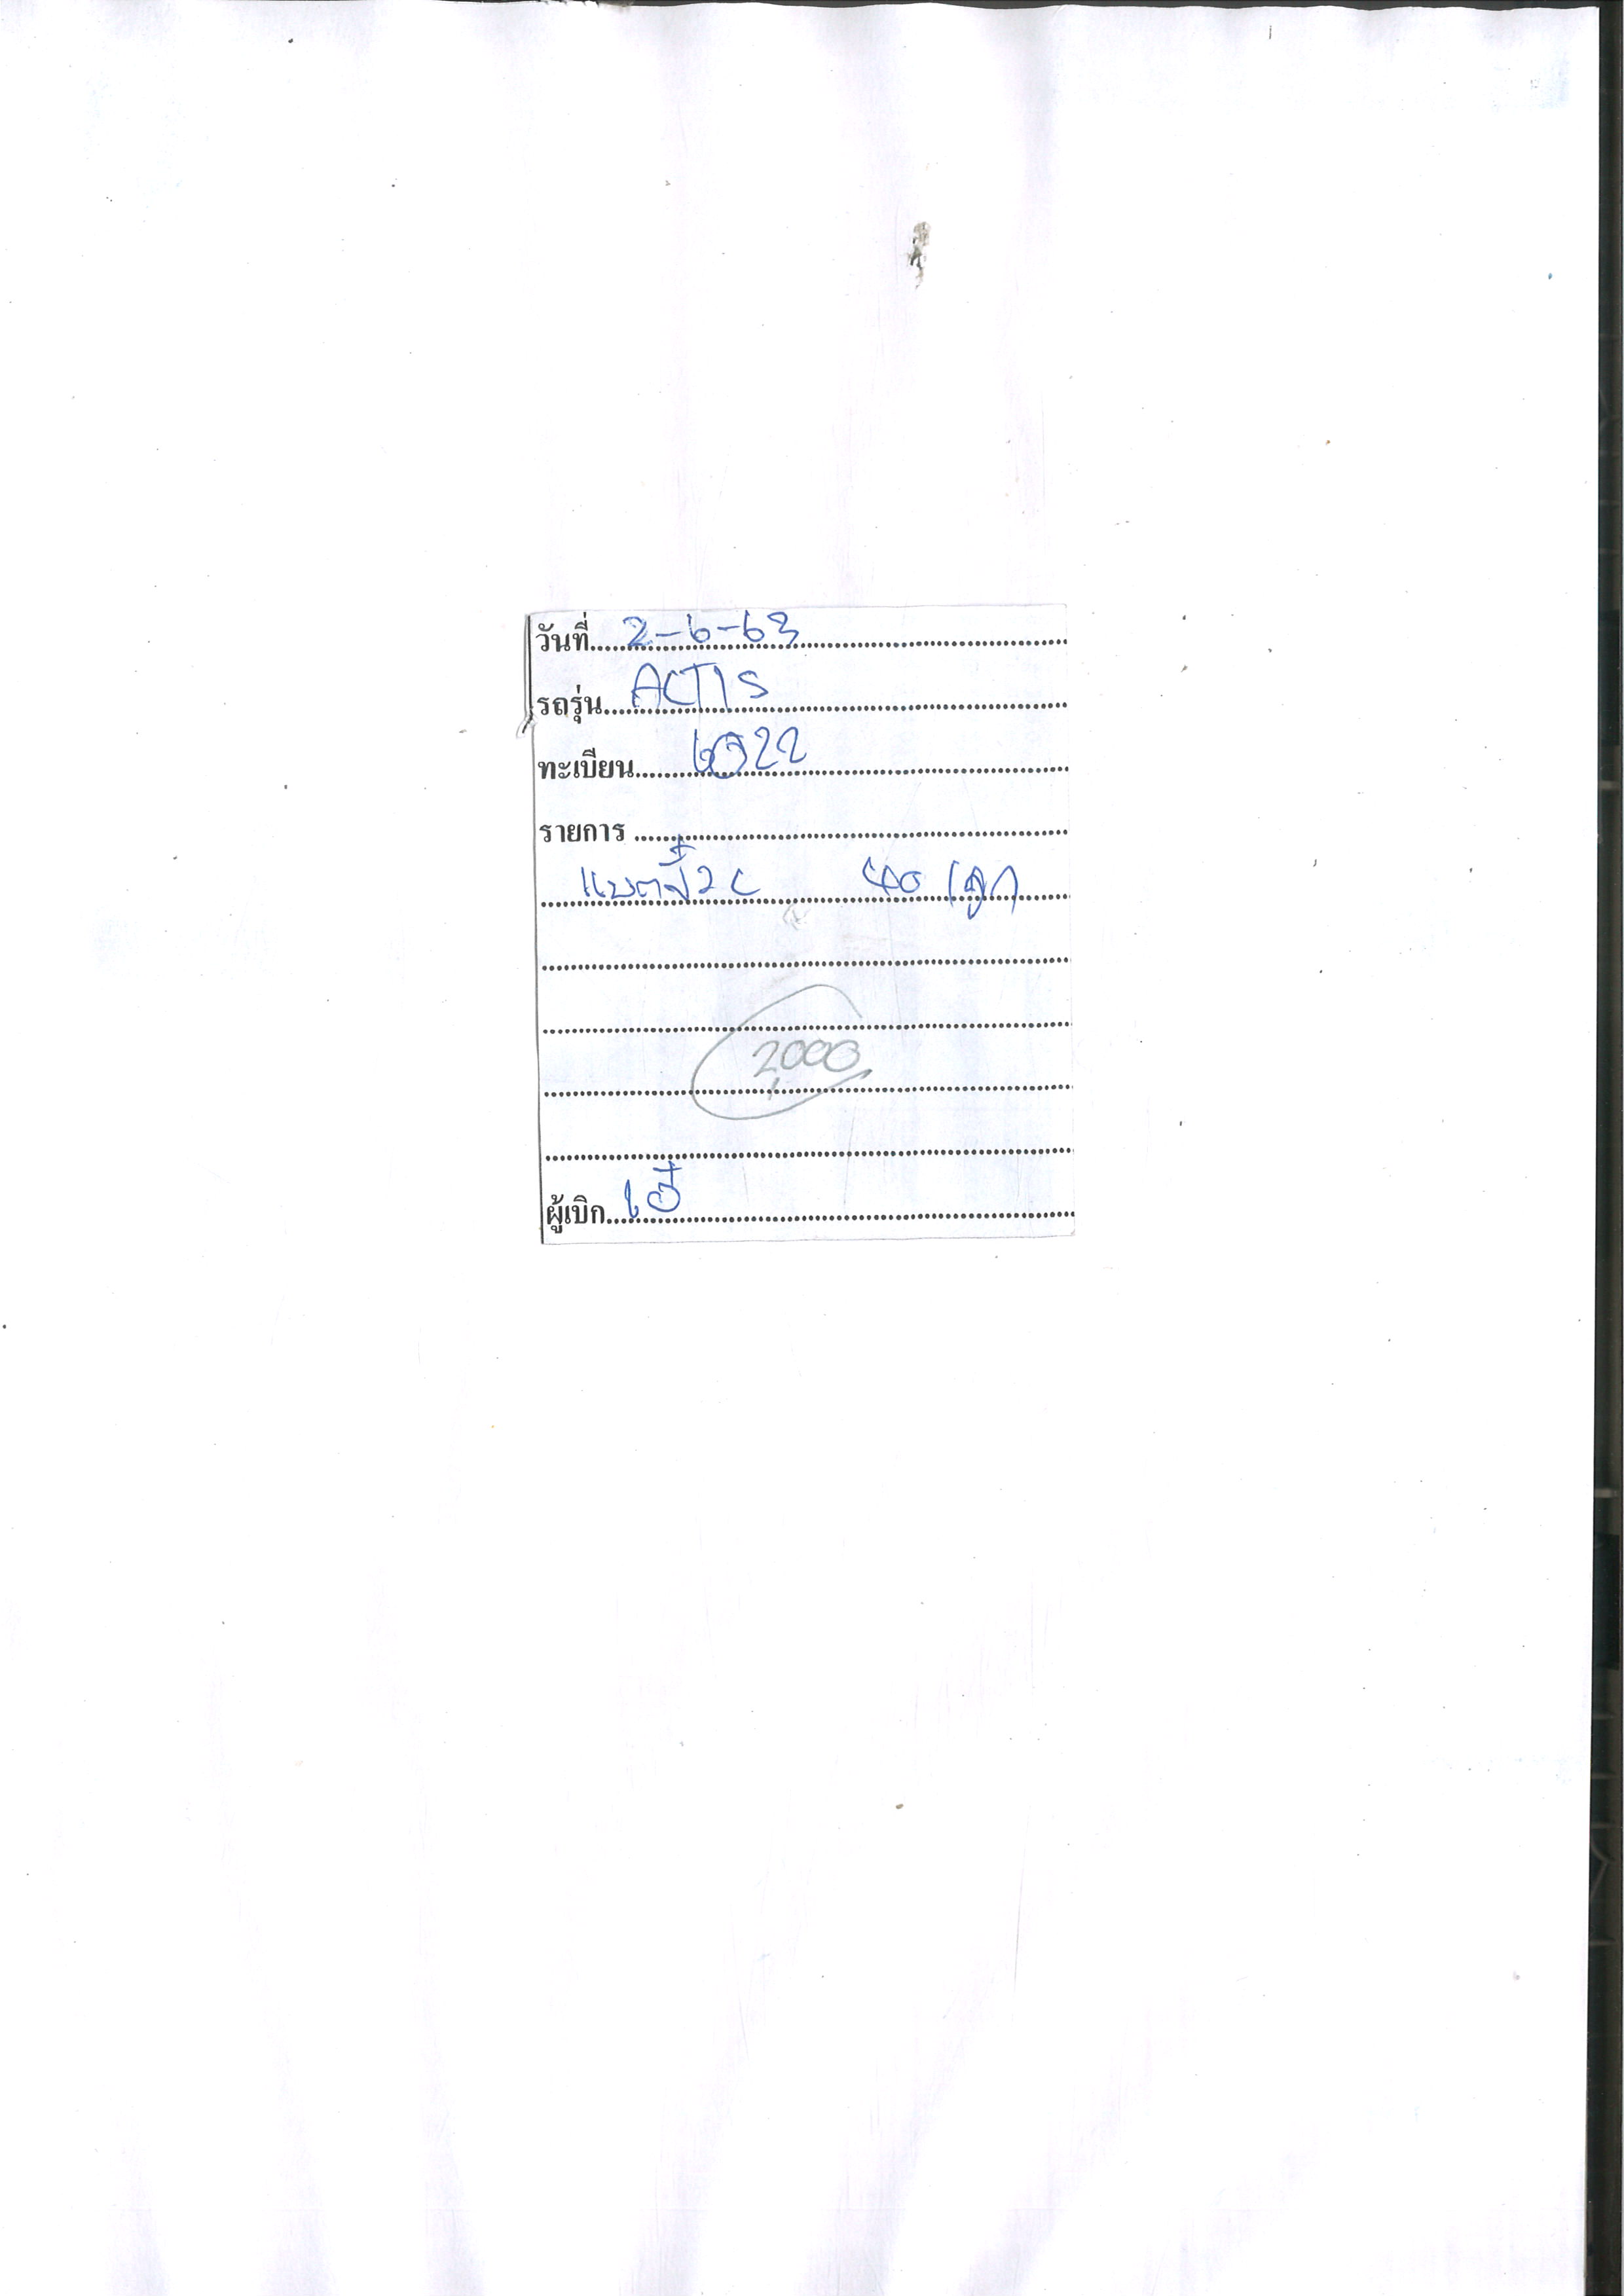 วันที่ 2-6-63
รถรุ่น ACTIS
ทะเบียน 22
รายการ
แบตลี่ 40 ลูก
2,000
ผู้เบิก เอี่